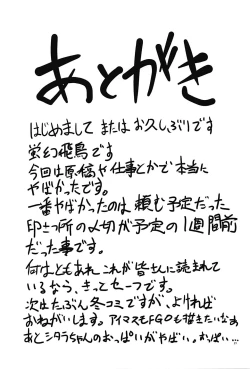 あとがき
はじめまして またはお久しぶりです
蛍幻飛鳥です
今回は原稿や仕事とかで本当に
やばかったです。
一番やばかったのは頼む予定だった
印さつ所の〆切が予定の1週間前
だった事です。
何はともあれ これが皆さんに読まれて
いるなら、きっとセーフです。
次はたぶん冬コミですが、よければ
おねがいします。アイマスもFGOも描きたいなぁ
あとシタラちゃんのおっぱいがやばい。おっぱい…